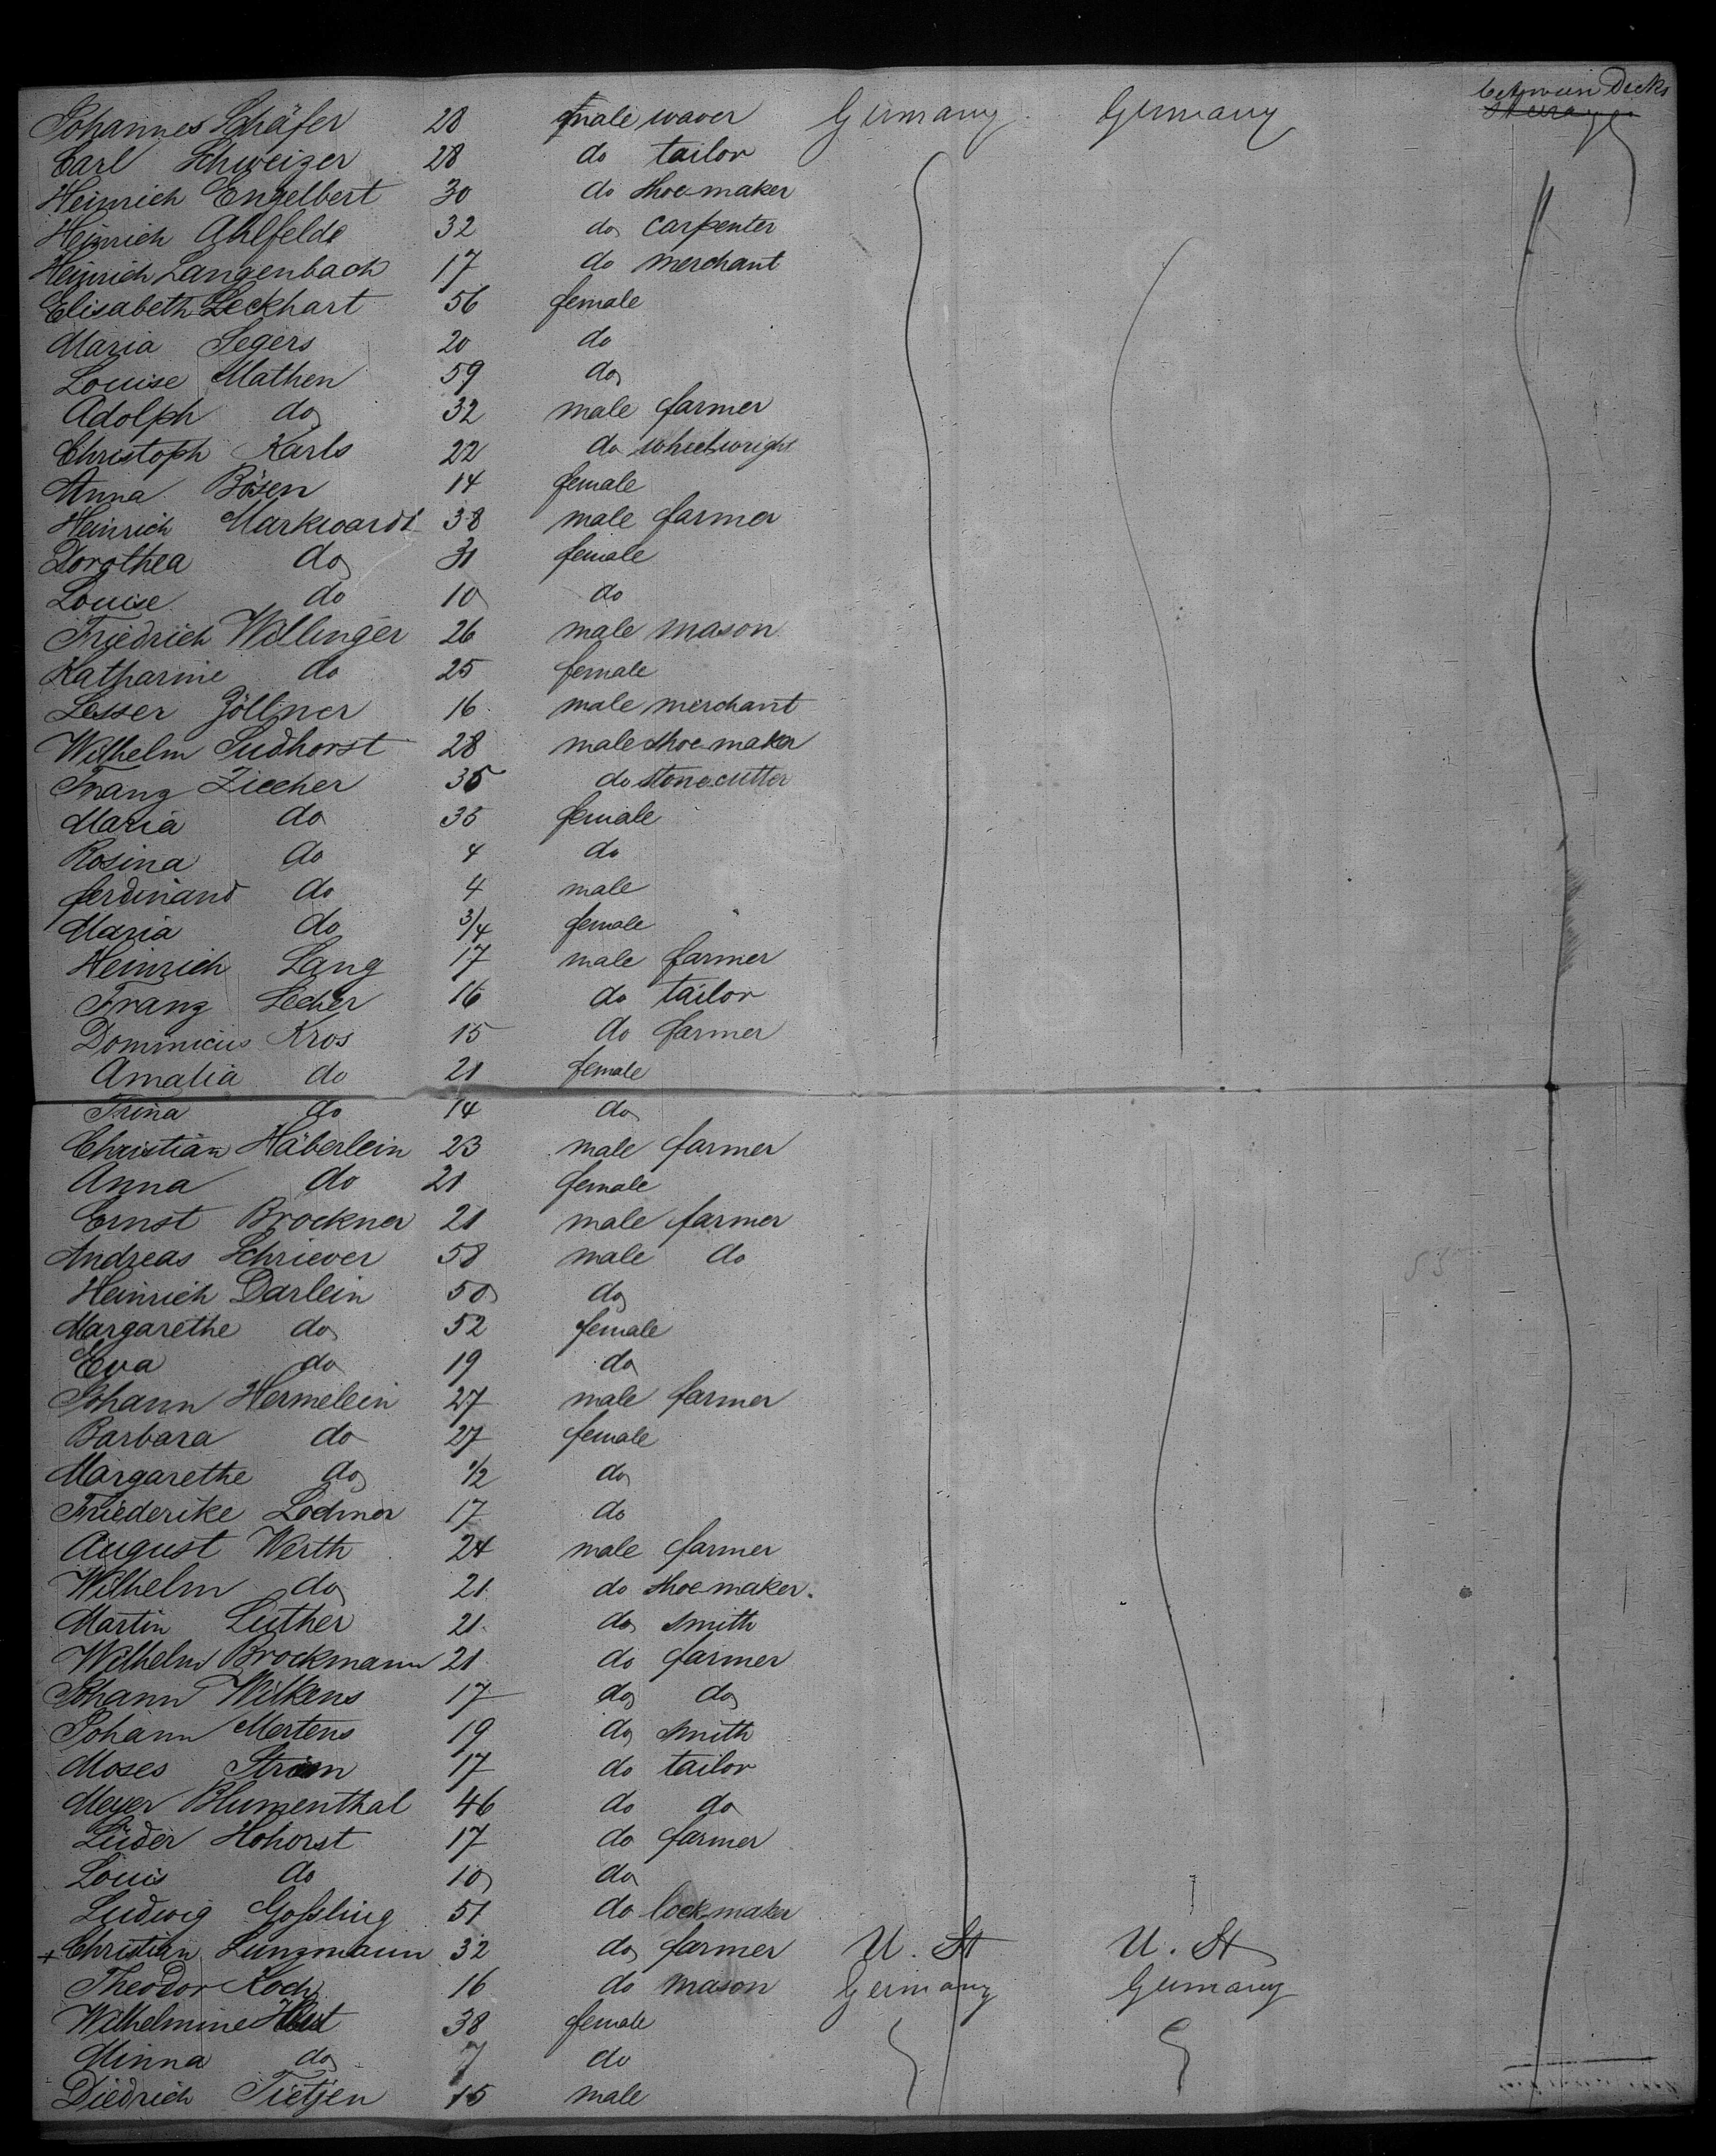 between Decks
Johannes Schäfer 28 male waver Germany Germany Steerage
Carl Schweizer 28 do tailor
Heinrich Engelbert 30 do shoe-maker
Heinrich Ahlfelde 32 do carpenter
Heinrich Langenbach 17 do merchant
Elisabeth Leckhart 56 female
Maria Segers 20 do
Louise Mathen 59 do
Adolph do 32 male farmer
Christoph Karls 22 do wheelwright
Anna Bösen 14 female
Heinrich Markwardt 38 male farmer
Dorothea do 31 female
Louise do 10 do
Friedrich Willinger 26 male mason
Katharine do 25 female
Lesser Zöllner 16 male merchant
Wilhelm Sudhorst 28 male shoe-maker
Franz Ziecher 35 do stonecutter
Maria do 35 female
Rosina do 4 do
ferdinand do 4 male
Maria do 3/4 female
Heinrich Lang 17 male farmer
Franz Lecher 16 do tailor
Dominicus Kros 15 do farmer
Amalia do 21 female
Trina do 14 do
Christian Häberlein 23 male farmer
Anna do 21 female
Ernst Brockner 21 male farmer
Andreas Schriever 58 male do
Heinrich Darlein 50 do
Margarethe do 52 female
Eva do 19 do
Johann Hermelein 27 male farmer
Barbara do 27 female
Margarethe do 1/2 do
Friederike Lochner 17 do
August Werth 24 male farmer
Wilhelm do 21 do shoe-maker.
Martin Luther 21 do smith
Wilhelm Brockmann 21 do farmer
Johann Wilkens 17 do do
Johann Mertens 19 do smith
Moses Strom 17 do tailor
Meyer Blumenthal 46 do do
Lüder Hohorst 17 do farmer
Louis do 10 do
Ludwig Goßling 51 do lockmaker
+ Christian Lunzmann 32 do farmer U. St U. St
Theodor Koch 16 do mason Germany Germany
Wilhelmine 38 female
Minna do 7 do
Diedrich Tietjen 15 male